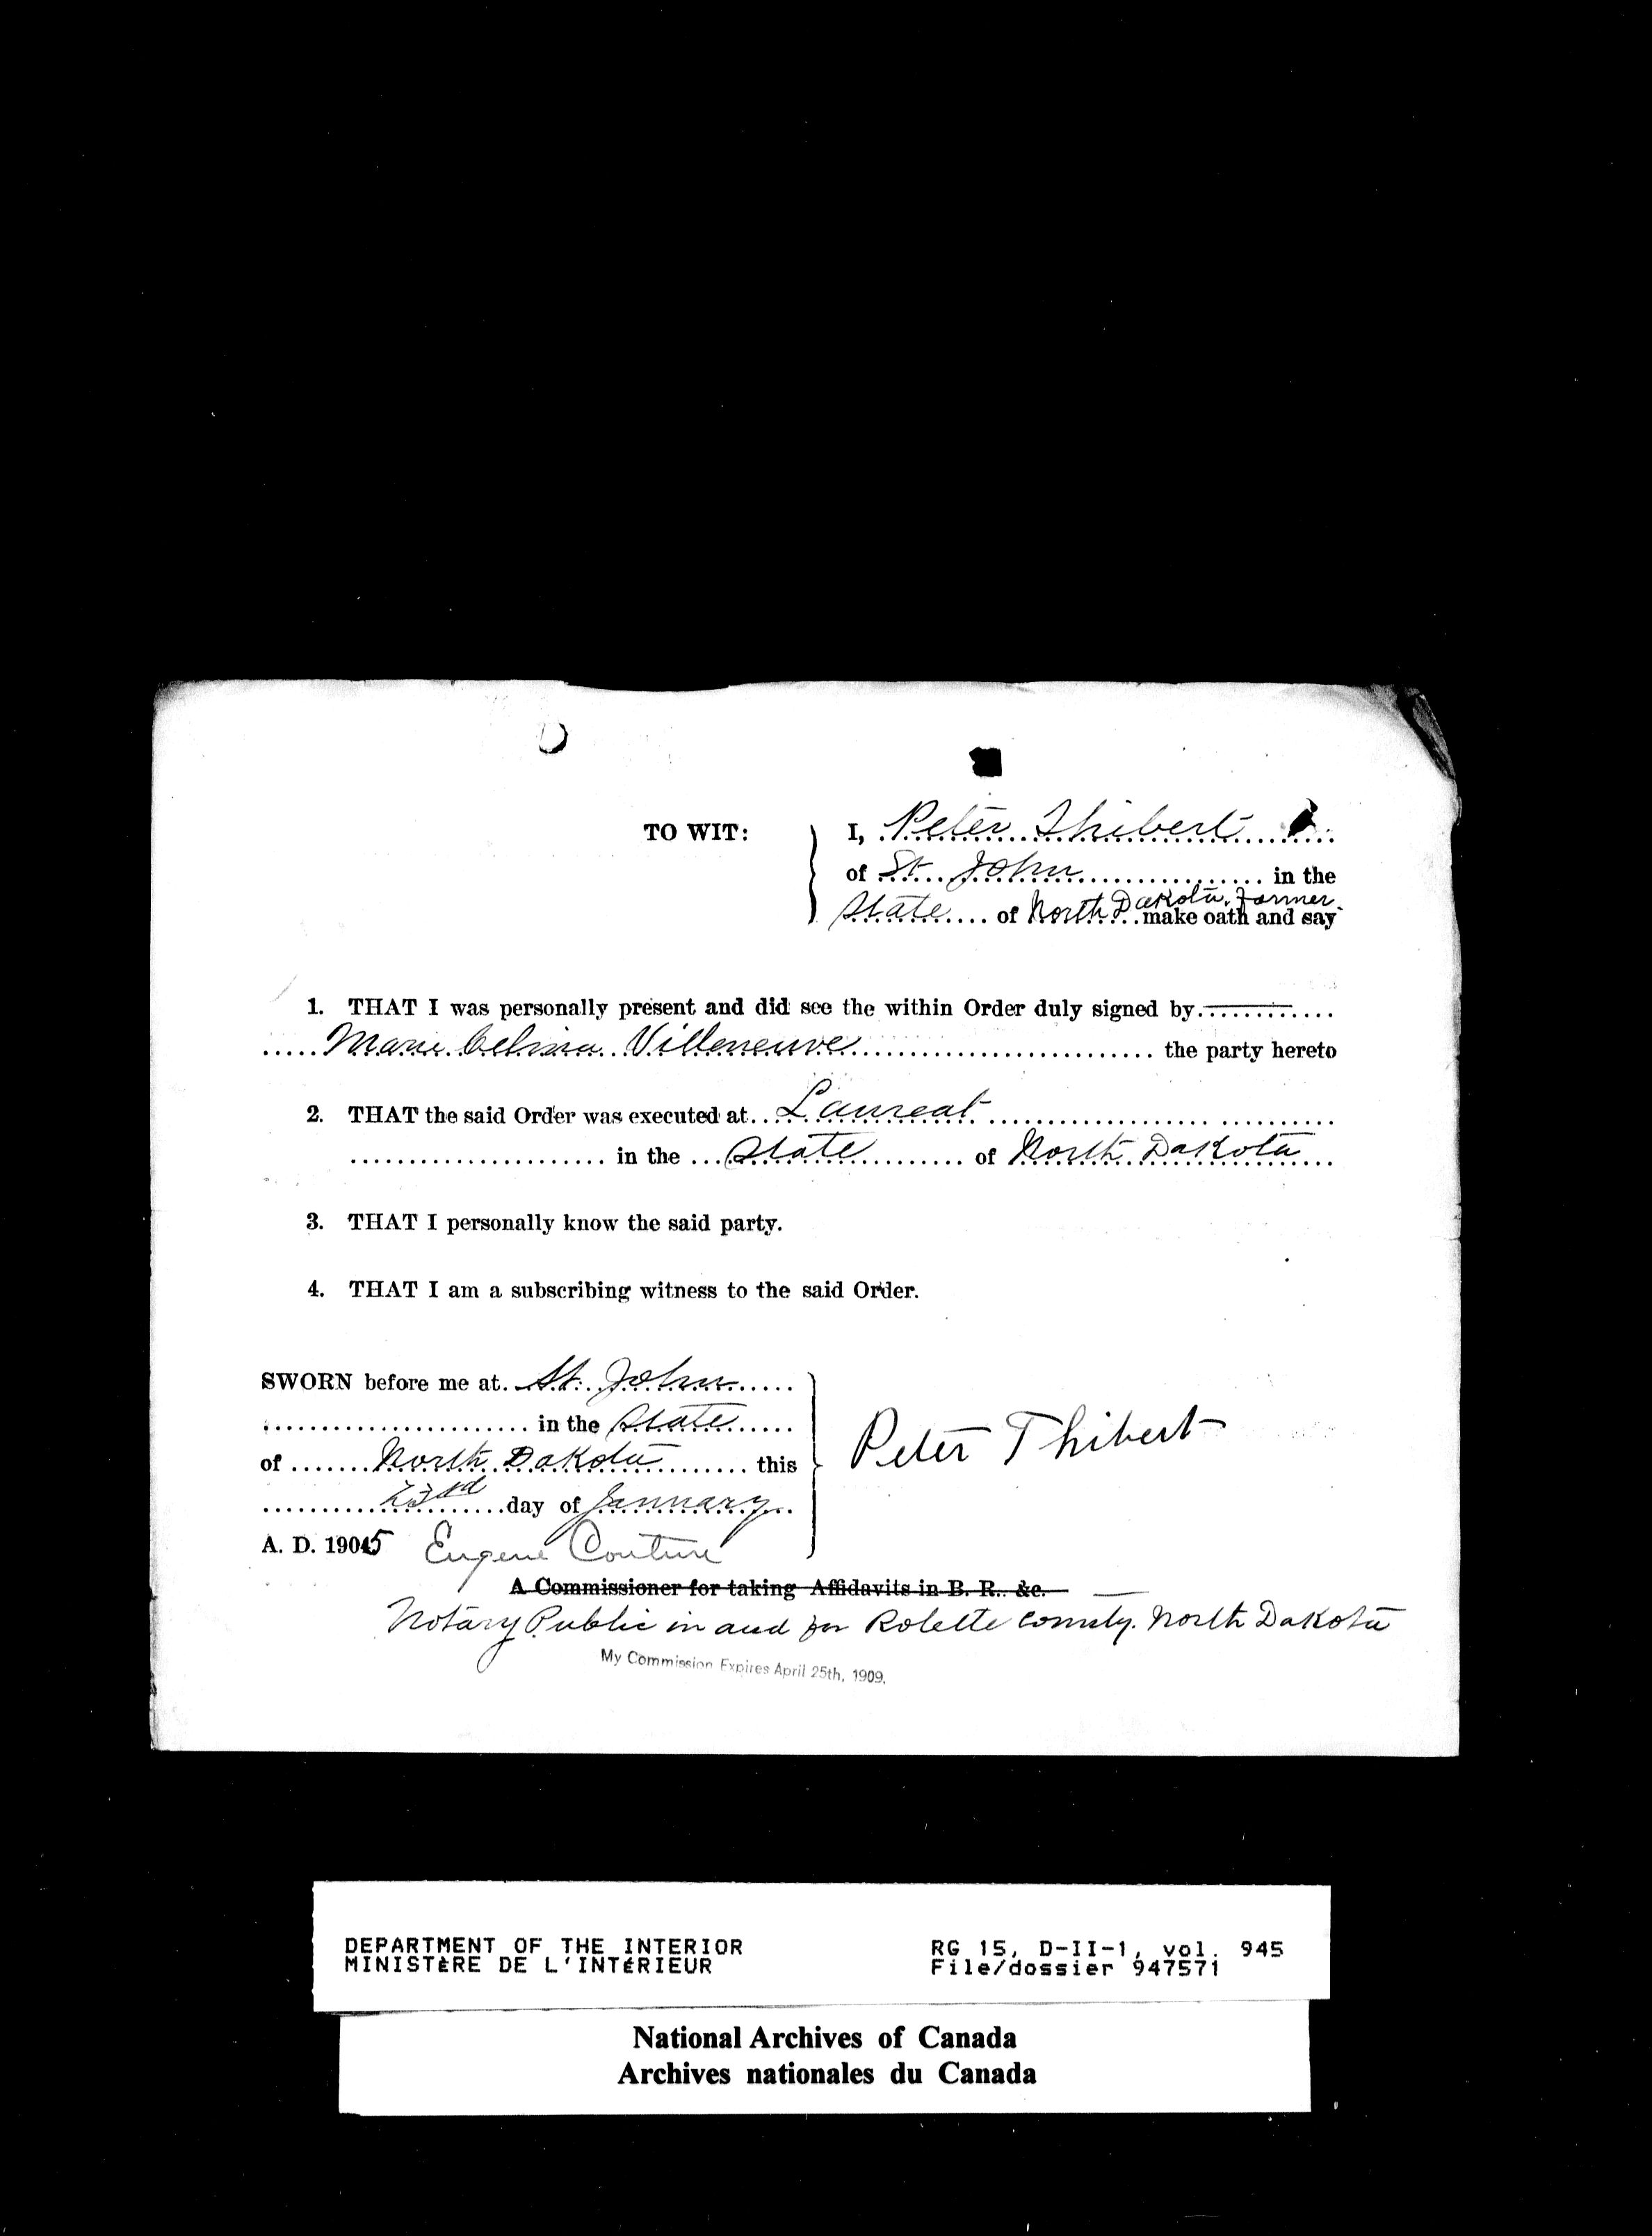 TO WIT: I, Peter Thibert
of St. John in the
State of North Dakota, Farmer make oath and say
1. THAT I was personally present and did see the within Order duly signed by
Marie Celina Villeneuve the party hereto
2. THAT the said Order was executed at Laureat
in the State of North Dakota
3. THAT I personally know the said party.
4. THAT I am a subscribing witness to the said Order.
SWORN before me at St. John
in the State
of North Dakota this
23rd day of January
A. D. 1905
Peter Thibert
Eugene Couture
A Commissioner for taking Affidavits in B. R. &c.
Notary Public in and for Rolette County. North Dakota
My Commission Expires April 25th, 1909.
DEPARTMENT OF THE INTERIOR RG 15, D-II-1, vol. 945
MINISTÈRE DE L'INTÉRIEUR File/dossier 947571
National Archives of Canada
Archives nationales du Canada